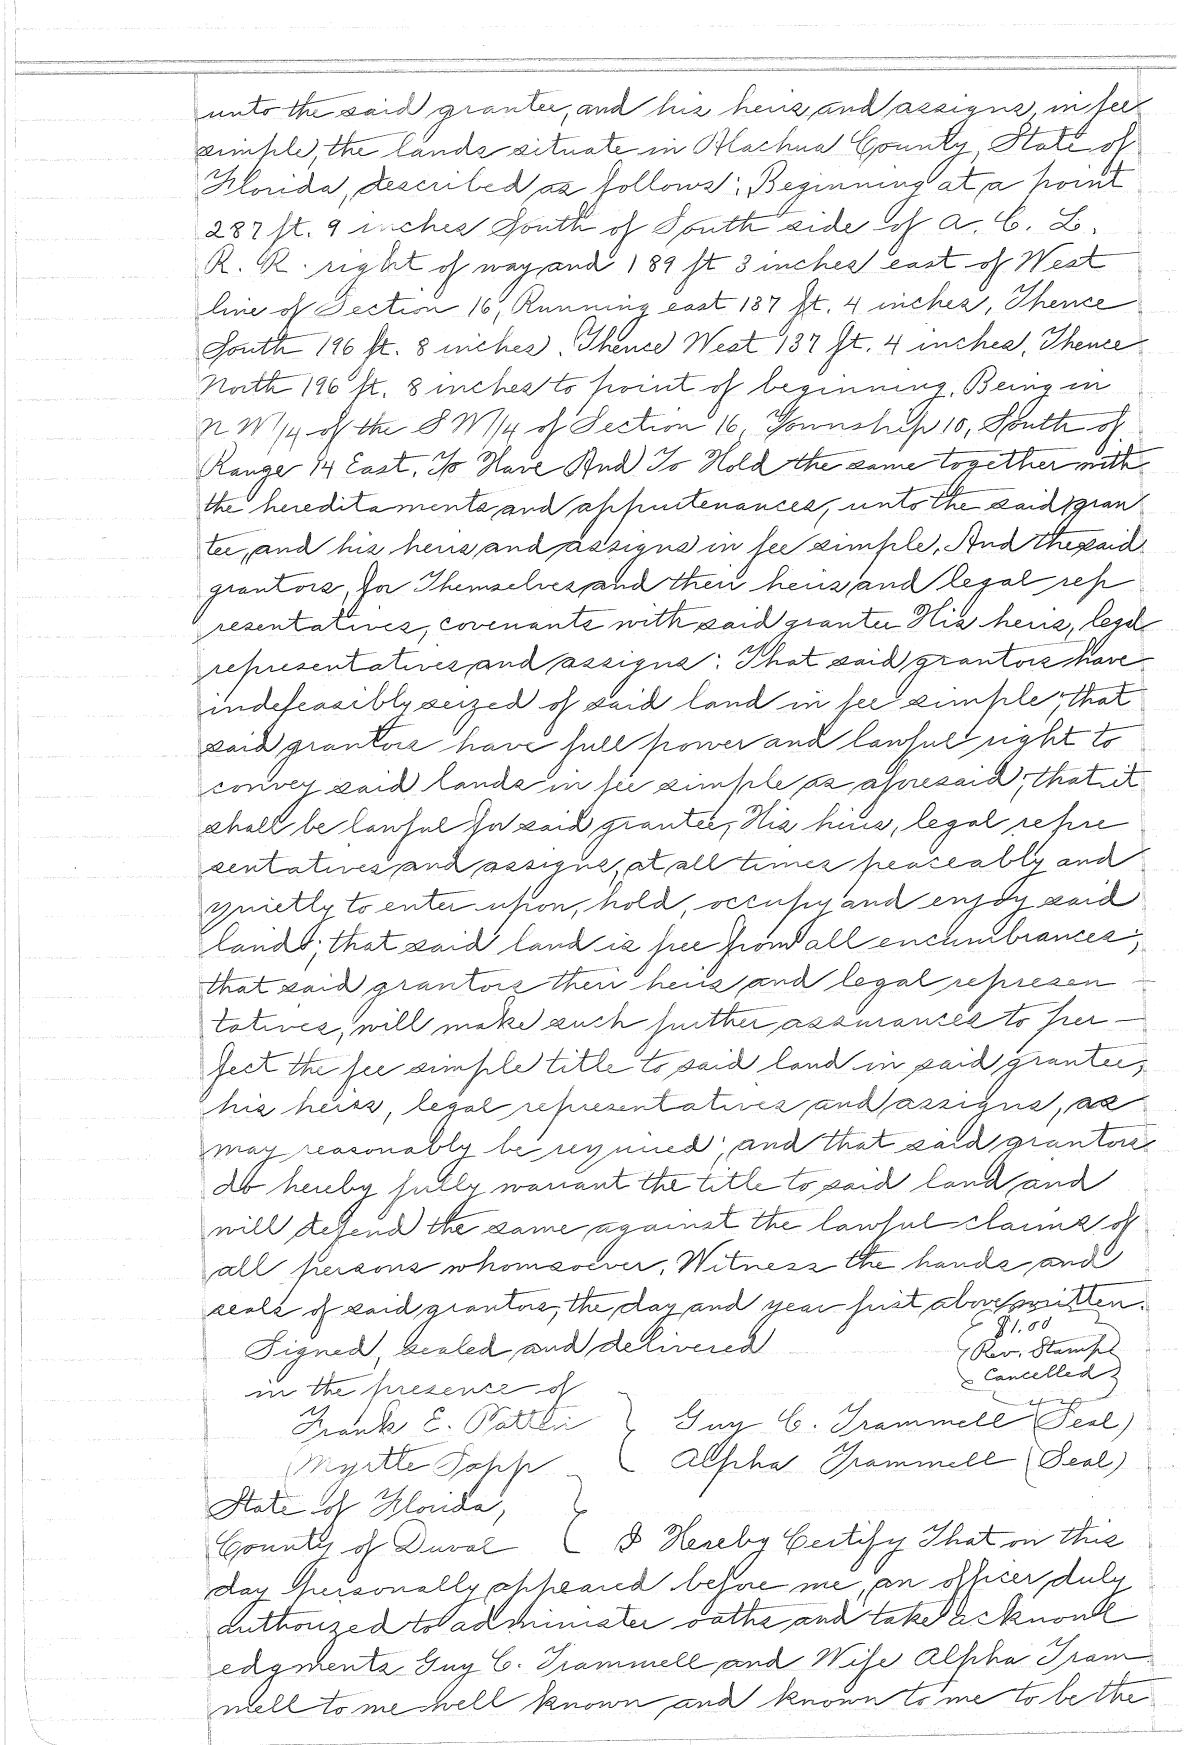 unto the said grantee, and his heirs and assigns, in fee
simple, the lands situate in Alachua County, State of
Florida, described as follows: Beginning at a point
287 ft. 9 inches South of South side of A. C. L.
R. R. right of way and 189 ft 3 inches east of West
line of Section 16, Running east 187 ft. 4 inches, Thence
South 196 ft. 8 inches. Thence West 137 ft. 4 inches, Thence
North 196 ft. 8 inches to point of beginning. Being in
N W/4 of the S W/4 of Section 16, Township 10, South of
Range 14 East. To Have And To Hold the same together with
the hereditaments and appurtenances, unto the said gran
tee, and his heirs and assigns in fee simple. And the said
grantors, for Themselves and their heirs and legal rep
resentatives, covenants with said grantee His heirs, legal
representatives and assigns: That said grantors have
indefeasibly seized of said land in fee simple; that
said grantors have full power and lawful right to
convey said lands in fee simple as aforesaid; that it
shall be lawful for said grantee, His heirs, legal repre
sentatives and assigns, at all times peaceably and
quietly to enter upon, hold, occupy and enjoy said
land; that said land is free from all encumbrances;
that said grantors their heirs and legal represen
tatives, will make such further assurances to per-
fect the fee simple title to said land in said grantee,
his heirs, legal representatives and assigns, as
may reasonably be required; and that said grantors
do hereby fully warrant the title to said land and
will defend the same against the lawful claims of
all persons whomsoever. Witness the hands and
seals of said grantors, the day and year first above written.
$1.00
Signed, sealed and delivered Rev. Stamp
Cancelled
in the presence of
Frank E. Guy C. Trammell (Seal)
Myrtle Sapp Alpha Trammell (Seal)
State of Florida,
County of Duval I Hereby Certify That on this
day personally appeared before me, an officer duly
authorized to administer oaths and take acknowl
edgments Guy C. Trammell and Wife Alpha Tram
mell to me well known and known to me to be the